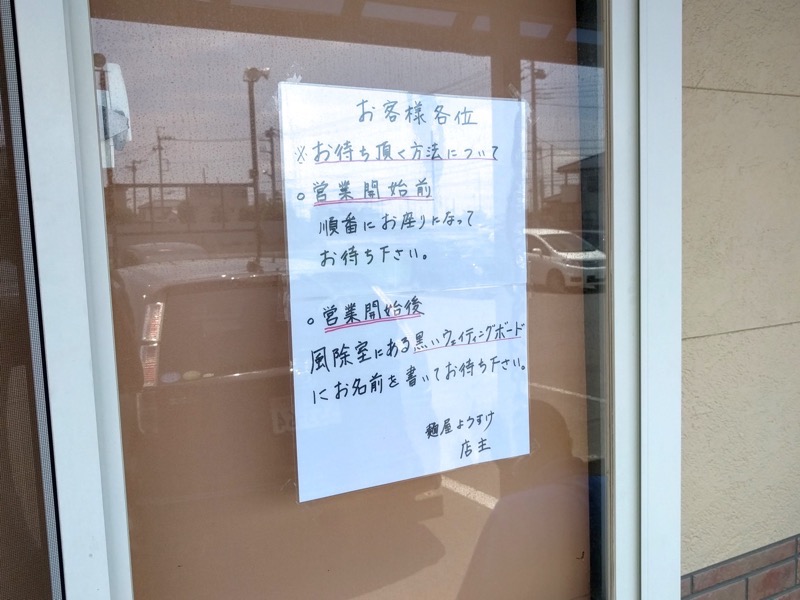 お客様各位
※お待ち頂く方法について
。営業開始前
順番にお座りになって
お待ち下さい。
。営業開始後
風除室にある黒いウェイティングボード
にお名前を書いてお待ち下さい。
麺屋ようすけ
店主